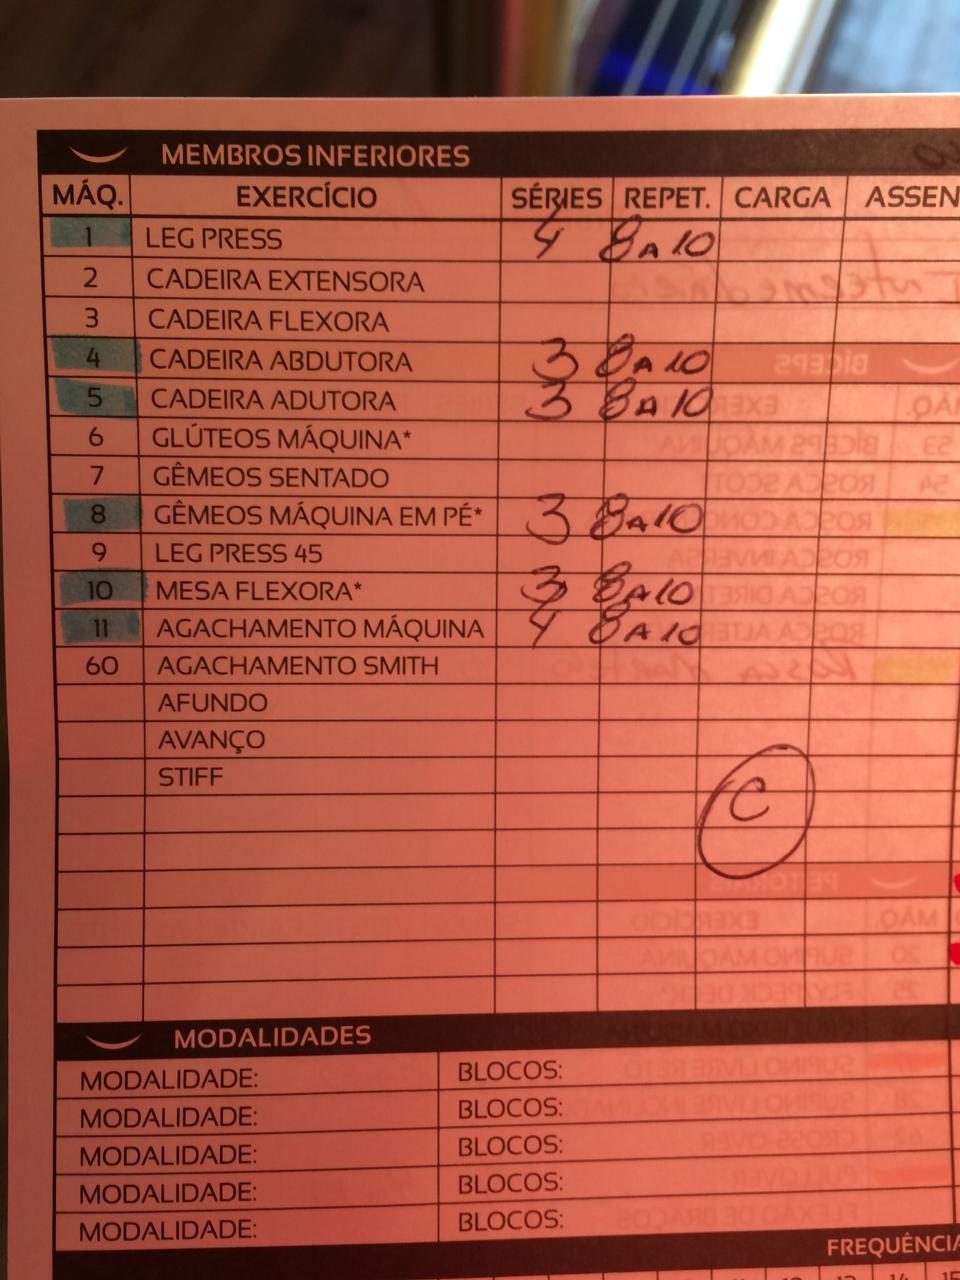 MEMBROS INFERIORES
MÁQ. EXERCÍCIO SÉRIES REPET. CARGA ASSEN
1 LEG PRESS 4 8 A 10
2 CADEIRA EXTENSORA
3 CADEIRA FLEXORA
4 CADEIRA ABDUTORA 3 8 A 10
5 CADEIRA ADUTORA 3 8 A 10
6 GLÚTEOS MÁQUINA*
7 GÊMEOS SENTADO
8 GÊMEOS MÁQUINA EM PÉ* 3 8 A 10
9 LEG PRESS 45
10 MESA FLEXORA* 3 8 A 10
11 AGACHAMENTO MÁQUINA 4 8 A 10
60 AGACHAMENTO SMITH
AFUNDO
AVANÇO
STIFF
C
MODALIDADES
MODALIDADE: BLOCOS:
MODALIDADE: BLOCOS:
MODALIDADE: BLOCOS:
MODALIDADE: BLOCOS:
MODALIDADE: BLOCOS:
FREQUÊNCIA